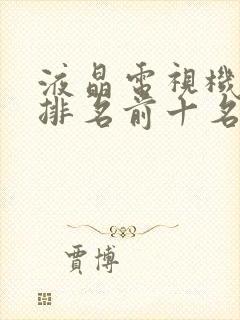 液晶電視機
排名前十名
賈博